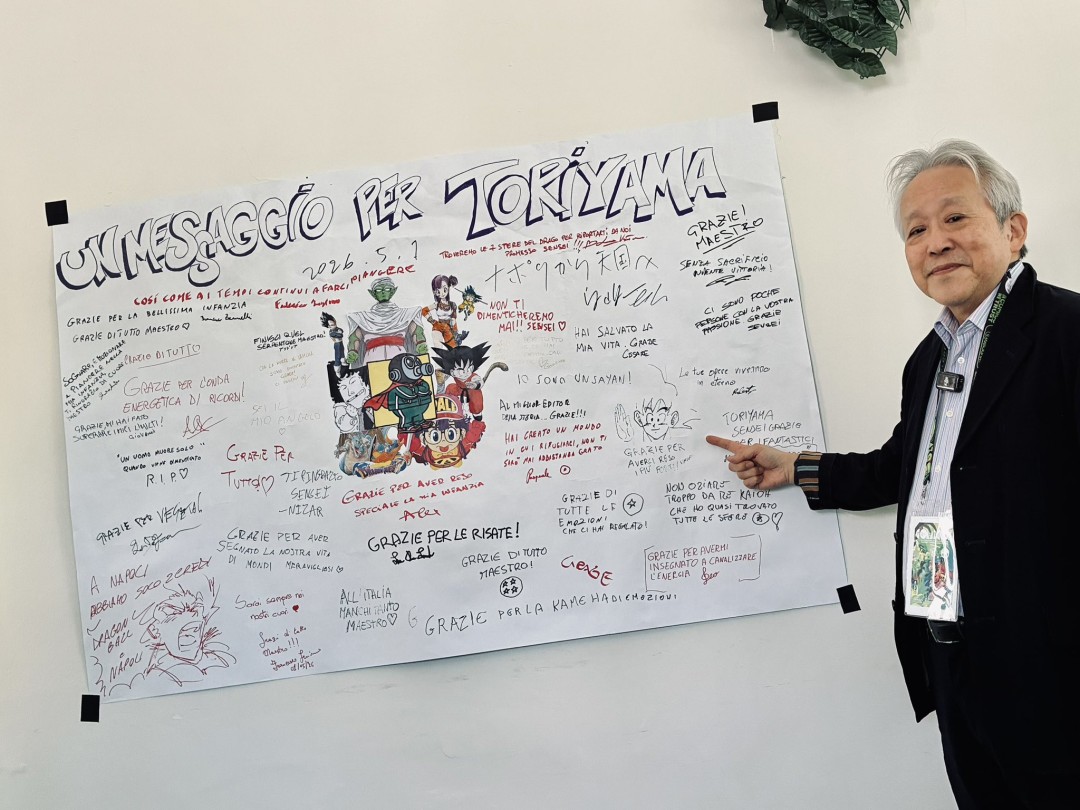 UN MESSAGGIO PER TORIYAMA
2026.5.1
COSÌ COME AI TEMPI CONTINUI A FARCI
PIANGERE
TROVEREMO LE 7 SFERE DEL DRAGO PER RIPORTARTI DA NOI
PROMESSO SENSEI!!!
ナポリから天国へ
GRAZIE!
MAESTRO
SENZA SACRIFICIO
VITTORIA!
GRAZIE PER LA BELLISSIMA INFANZIA
GRAZIE DI TUTTO MAESTRO
GRAZIE DI TUTTO
NON TI
DIMENTICHEREMO
MAI!! SENSEI
HAI SALVATO LA
MIA VITA. GRAZIE
CESARE
CI SONO POCHE
PERSONE CON LA VOSTRA
PASSIONE GRAZIE
SENSEI
GRAZIE PER L'ONDA
ENERGETICA DI RICORDI!
SEI IL
MIO ANGELO
IO SONO UN SAYAN!
Le tue opere vivranno in
eterno
GRAZIE, MI HAI FATO
SUPERARE I MIEI LIMITI!
AL MIGLIOR EDITOR
DELLA STORIA... GRAZIE!!!
HAI CREATO UN MONDO
IN CUI RIFUGIARCI, NON TI
SARÒ MAI ABBASTANZA GRATO
TORIYAMA
SENSEI GRAZIE
PER I FANTASTICI
"UN UOMO MUORE SOLO
QUANDO VIENE DIMENTICATO"
R.I.P.
GRAZIE PER
TUTTO!
TI RINGRAZIO
SENSEI
-NIZAR
GRAZIE PER AVER RESO
SPECIALE LA MIA INFANZIA
GRAZIE PER
AVERCI RESO
I PIÙ
GRAZIE DI
TUTTE LE
EMOZIONI
CHE CI HAI REGALATO!
NON OZIARE
TROPPO DA RE KAIOH
CHE HO QUASI TROVATO
TUTTE LE SFERE
GRAZIE PER VEGETA!
GRAZIE PER AVER
SEGNATO LA NOSTRA VITA
DI MONDI MERAVIGLIOSI
GRAZIE PER LE RISATE!
GRAZIE DI TUTTO
MAESTRO!
GRAZIE PER AVERMI
INSEGNATO A CANALIZZARE
L'ENERGIA
A NAPOLI
ABBIAMO SOLO 2 CREDI
DRAGON
BALL
E
NAPOLI
Sarai sempre nei
nostri cuori
Grazie di tutto
Maestro!!!
ALL'ITALIA
MANCHI TANTO
MAESTRO
GRAZIE PER LA KAME HADIEMOZIONI